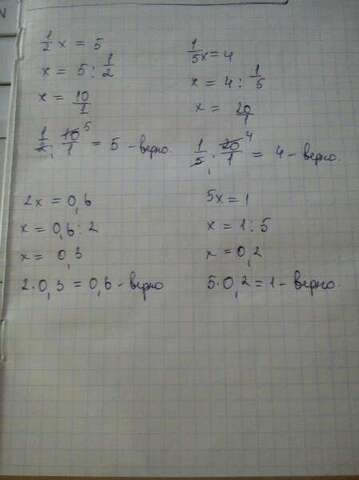 1/2 x = 5
x = 5 : 1/2
x = 10/1
1/2 · 10/1 5 = 5 - верно.
1/5 x = 4
x = 4 : 1/5
x = 20/1
1/5 · 20/1 4 = 4 - верно.
2x = 0,6
x = 0,6 : 2
x = 0,3
2·0,3 = 0,6 - верно
5x = 1
x = 1 : 5
x = 0,2
5·0,2 = 1 - верно.